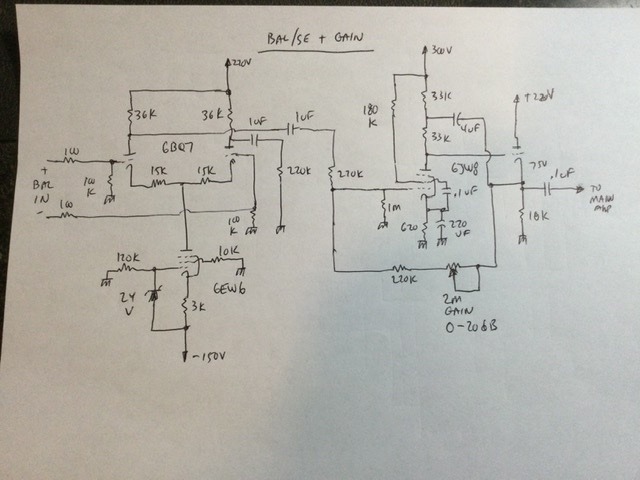 BAL/SE + GAIN
220V
300V
+220V
36K
36K
1UF
1UF
180
K
33K
33K
4UF
6BQ7
100
+
BAL
IN
-
100
100
K
15K
15K
220K
270K
6JW8
75V
.1UF
TO
MAIN
AMP
1M
.1UF
620
220
UF
18K
100
K
120K
10K
6EW6
24
V
3K
-150V
220K
2M
GAIN
0-20dB